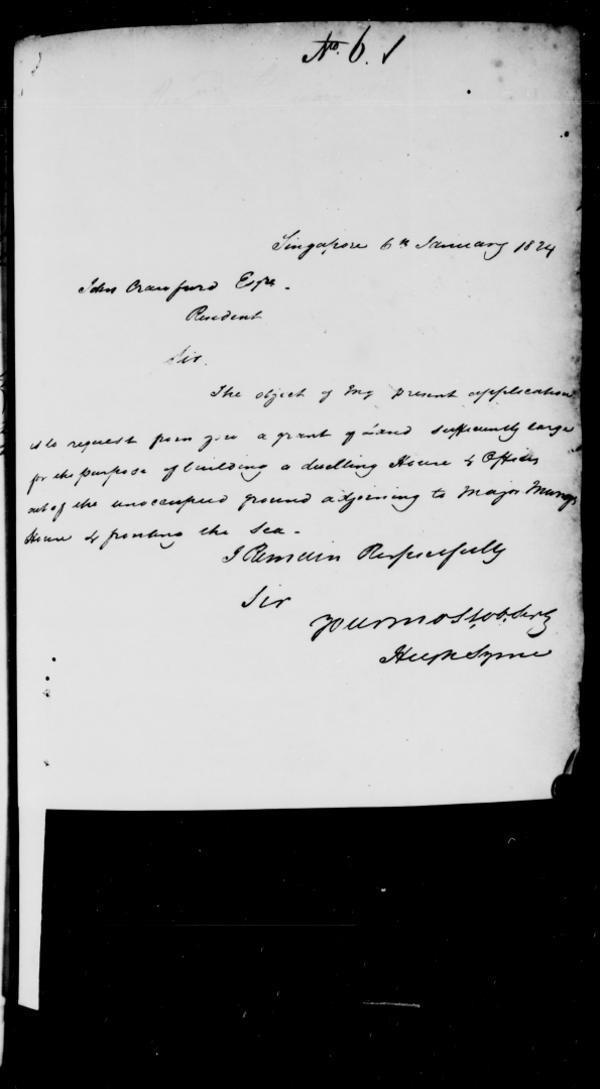 No. 6.
Singapore 6th January 1824
John Crawfurd Esqre.
Resident
Sir.
The object of my present application
is to request from you a grant of land sufficiently large
for the purpose of building a dwelling House & Offices
out of the unoccupied ground adjoining to Major
House & fronting the Sea.
I Remain Respectfully
Sir
Your most obt. Servt
Hugh Syme